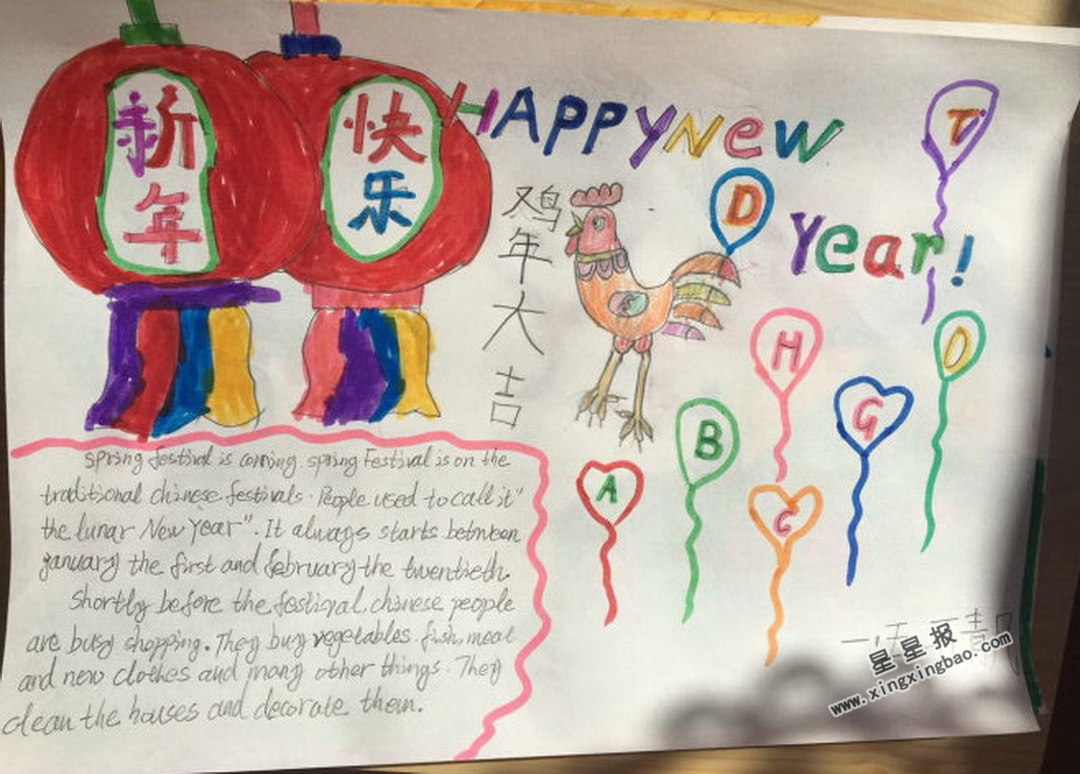 新年
快乐
HAPPY New
Year!
鸡年大吉
T
D
H
O
G
B
A
C
Spring festival is coming. spring Festival is on the
traditional chinese festivals. People used to call it"
the lunar New Year". It always starts between
january the first and february the twentieth.
Shortly before the festival, chinese people
are busy shopping. They buy vegetables. fish, meat
and new clothes and many other things. They
clean the houses and decorate them.
星星报
www.xingxingbao.com